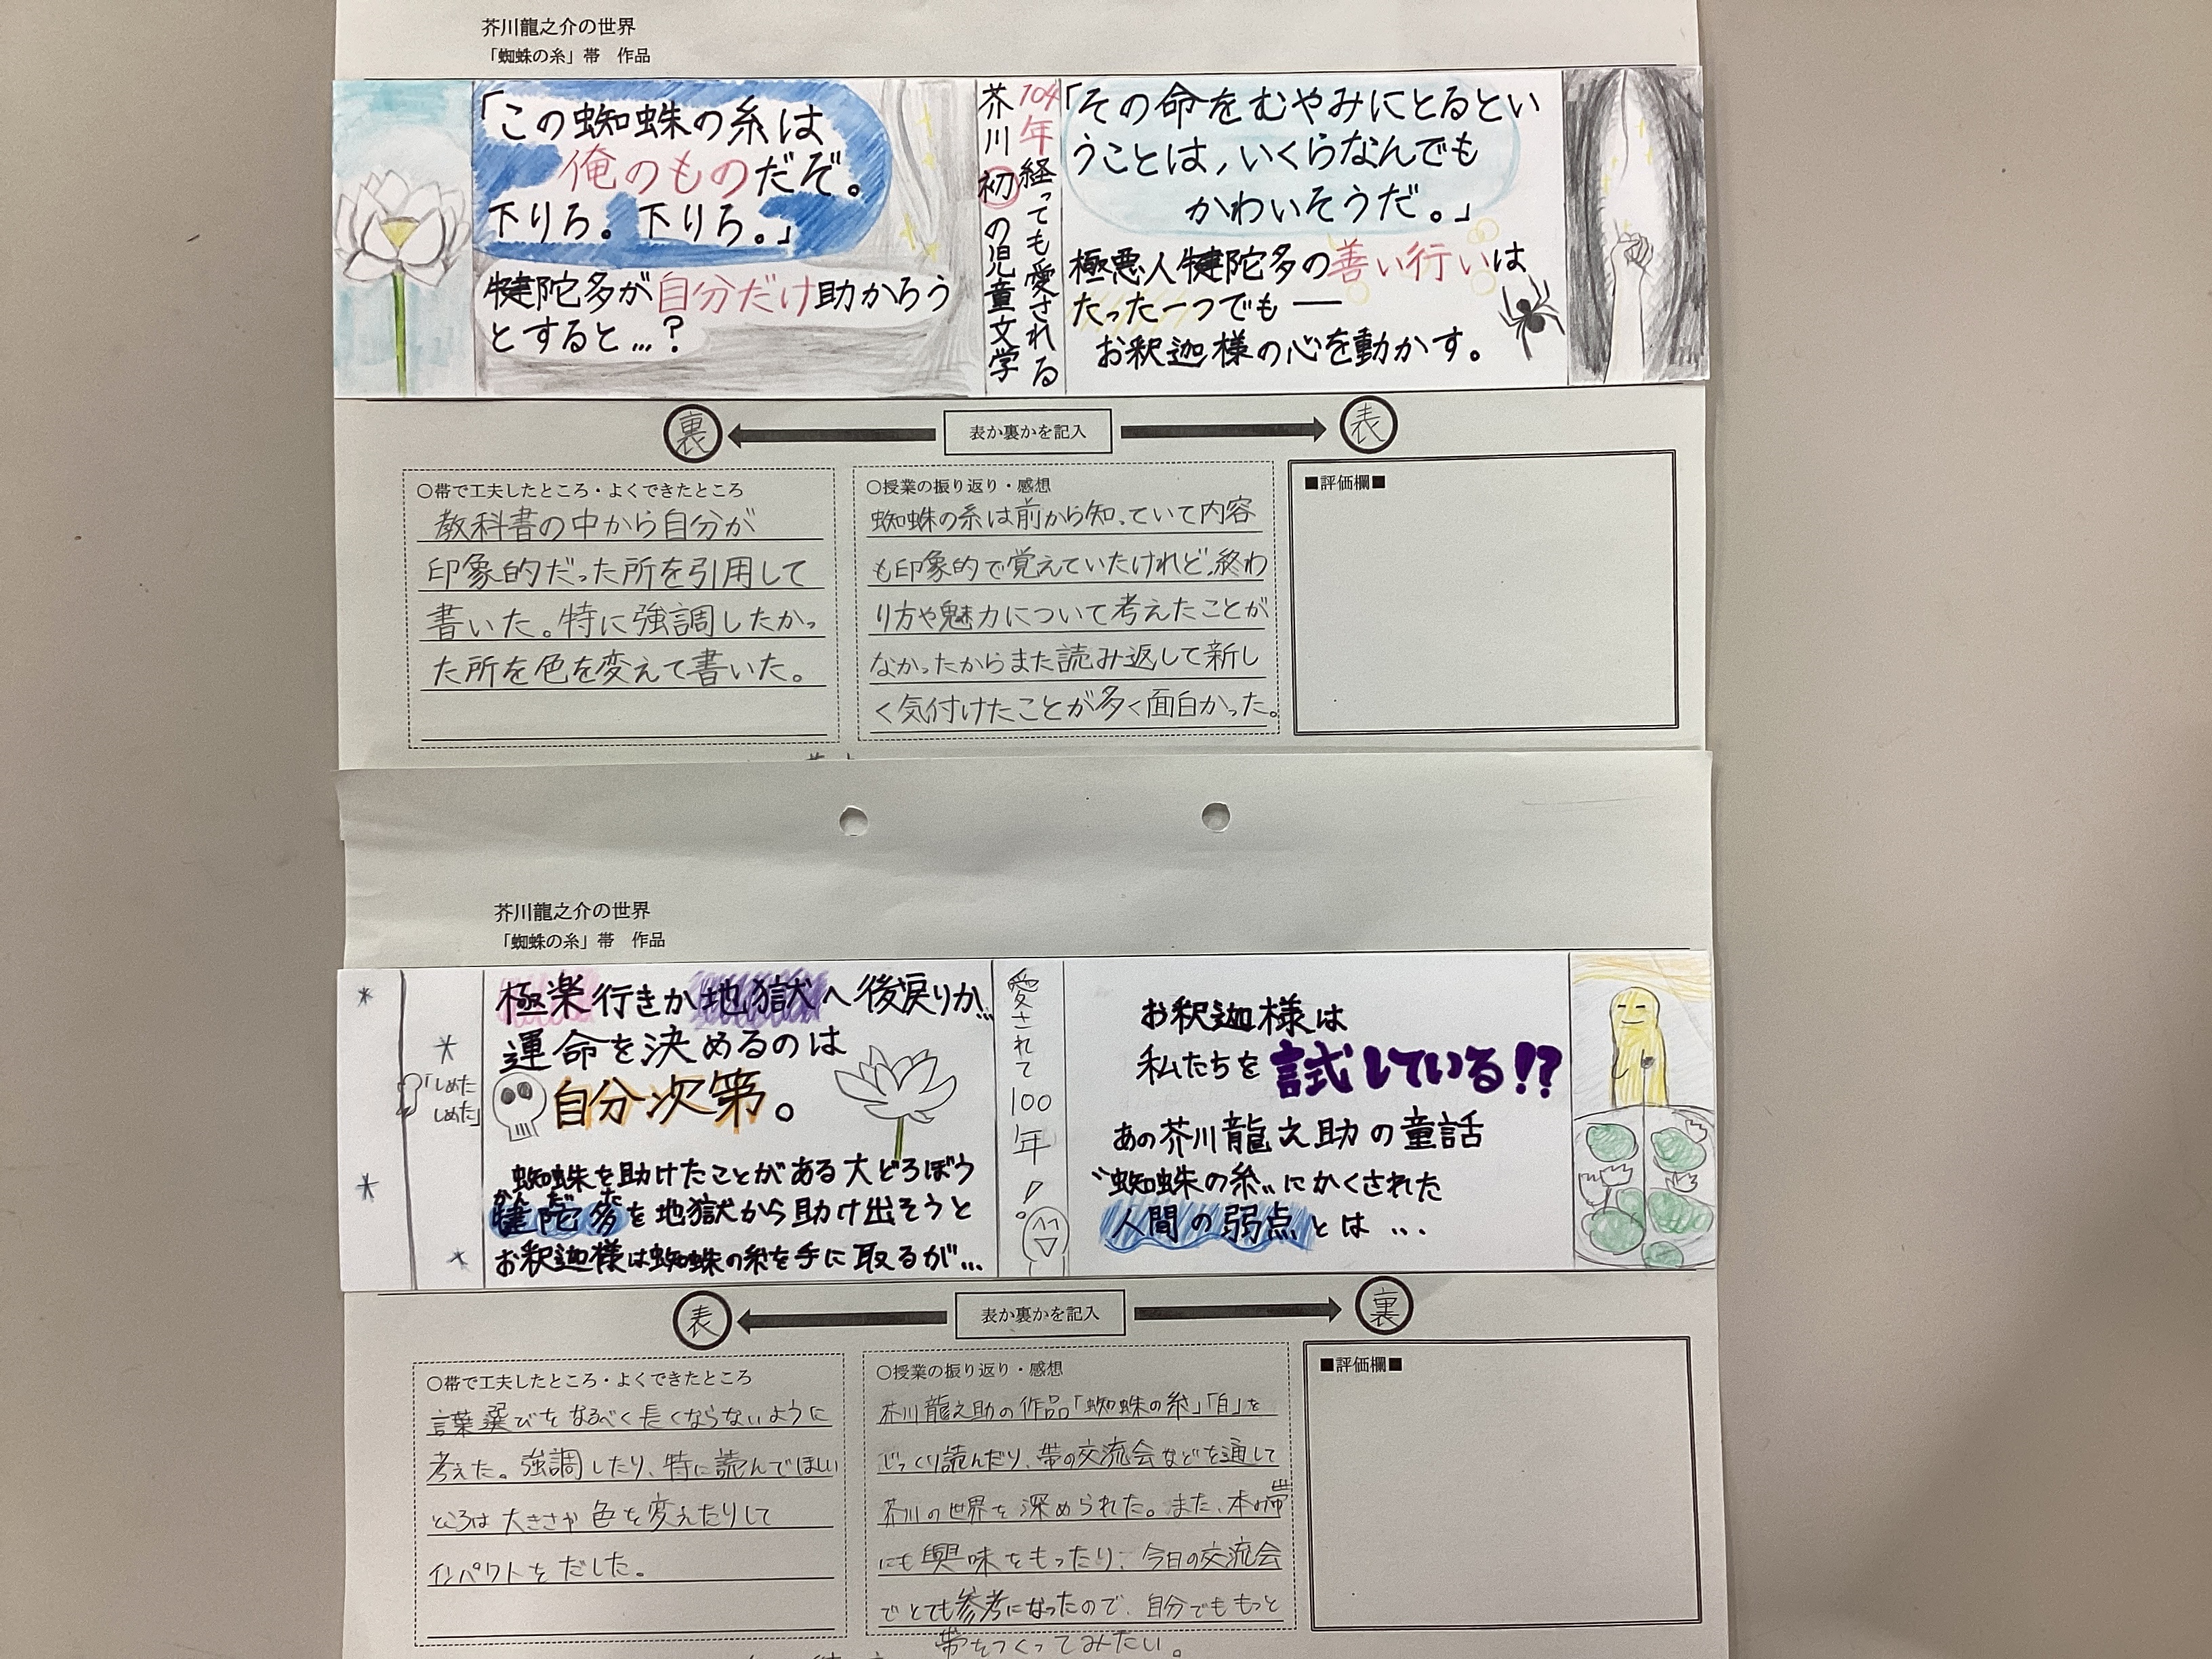 芥川龍之介の世界
「蜘蛛の糸」帯　作品
「この蜘蛛の糸は
俺のものだぞ。
下りろ。下りろ。」
犍陀多が自分だけ助かろう
とすると…?
104年経っても愛される
芥川初の児童文学
「その命をむやみにとるとい
うことは，いくらなんでも
かわいそうだ。」
極悪人犍陀多の善い行いは
たった一つでも―
お釈迦様の心を動かす。
裏
表か裏かを記入
表
○帯で工夫したところ・よくできたところ
教科書の中から自分が
印象的だった所を引用して
書いた。特に強調したかっ
た所を色を変えて書いた。
○授業の振り返り・感想
蜘蛛の糸は前から知っていて内容
も印象的で覚えていたけれど、終わ
り方や魅力について考えたことが
なかったからまた読み返して新し
く気付けたことが多く面白かった。
■評価欄■
芥川龍之介の世界
「蜘蛛の糸」帯　作品
「しめた
しめた」
極楽行きか地獄へ後戻りか…
運命を決めるのは
自分次第。
蜘蛛を助けたことがある大どろぼう
かんだた
犍陀多を地獄から助け出そうと
お釈迦様は蜘蛛の糸を手に取るが…
愛されて100年!
お釈迦様は
私たちを試している!?
あの芥川龍之助の童話
"蜘蛛の糸"にかくされた
人間の弱点とは…
表
表か裏かを記入
裏
○帯で工夫したところ・よくできたところ
言葉選びをなるべく長くならないように
考えた。強調したり、特に読んでほしい
ところは大きさや色を変えたりして
インパクトをだした。
○授業の振り返り・感想
芥川龍之助の作品「蜘蛛の糸」「白」を
じっくり読んだり、帯の交流会などを通して
芥川の世界を深められた。また、本の帯
にも興味をもったり、今日の交流会
でとても参考になったので、自分でももっと
帯をつくってみたい。
■評価欄■